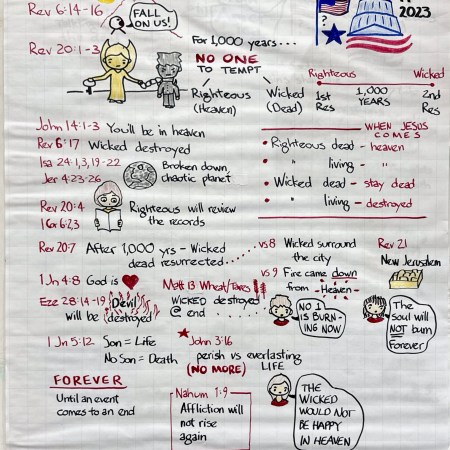 Rev 6:14-16
FALL
ON US!
2023
?
Rev 20:1-3
For 1,000 years...
NO ONE
TO TEMPT
Righteous
(Heaven)
Wicked
(Dead)
Righteous Wicked
1st
Res
1,000
YEARS
2nd
Res
John 14:1-3 You'll be in heaven
Rev 6:17 Wicked destroyed
Isa 24:1,3,19-22
Jer 4:23-26
Broken down,
chaotic planet
WHEN JESUS
COMES
• Righteous dead - heaven
• " living - "
• Wicked dead - stay dead
• " living - destroyed
Rev 20:4
1 Cor 6:2,3
Righteous will review
the records
Rev 20:7 After 1,000 yrs - Wicked
dead resurrected
vs 8 Wicked surround
the city
vs 9 Fire came down
from Heaven
Rev 21
New Jerusalem
1 Jn 4:8 God is
Eze 28:14-19 Devil
will be destroyed
Matt 13 Wheat/Tares
Wicked destroyed
@ end
NO 1
IS BURN-
ING NOW
The
soul will
NOT burn
Forever
1 Jn 5:12 Son = Life
No Son = Death
John 3:16
perish vs everlasting
(NO MORE) LIFE
FOREVER
Until an event
comes to an end
Nahum 1:9
Affliction will
not rise
again
THE
WICKED
WOULD NOT
BE HAPPY
IN HEAVEN